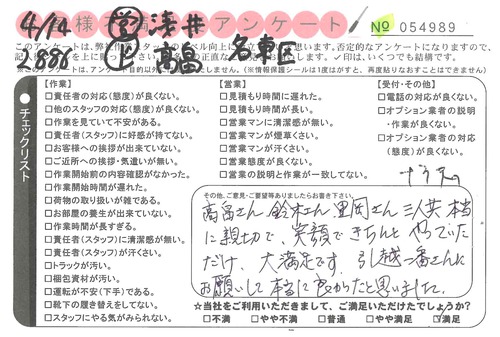 4/14 営 浅井
様アンケート
№ 054989
2,886 高畠 名東区
このアンケートは、弊社
記入を上に
※このアンケートは、アンケート目的以外
しません。（※情報保護シールは1度はがすと、再度貼りなおすことはできません）
チェックリスト
【作業】
□責任者の対応（態度）が良くない。
□他のスタッフの対応（態度）が良くない。
□作業を見ていて不安がある。
□責任者（スタッフ）に好感が持てない。
□お客様への挨拶が出来ていない。
□ご近所への挨拶・気遣いが無い。
□作業開始前の内容確認がなかった。
□作業開始時間が遅れた。
□荷物の取り扱いが雑である。
□お部屋の養生が出来ていない。
□作業時間が長すぎる。
□責任者（スタッフ）に清潔感が無い。
□責任者（スタッフ）が汗くさい。
□トラックが汚い。
□梱包資材が汚い。
□運転が不安（下手）である。
□靴下の履き替えをしてない。
□スタッフにやる気がみられない。
【営業】
□見積もり時間に遅れた。
□見積もり時間が長い。
□営業マンに清潔感が無い。
□営業マンが煙草くさい。
□営業マンが汗くさい。
□営業態度が良くない。
□営業の説明と作業が一致してない。
【受付・その他】
□電話の対応が良くない。
□オプション業者の説明
・作業が良くない。
□オプション業者の対応
（態度）が良くない。
その他、ご意見・ご要望等ありましたらお書き下さい。
高畠さん 鈴木さん 里岡さん 三人共 本当
に親切で、笑顔できちんと やっていた
だけ、大満足です。引越一番さんに
お願いして本当に良かったと思いました。
☆当社をご利用いただきまして、ご満足いただけたでしょうか?
□不満 □やや不満 □普通 □やや満足 ☑満足